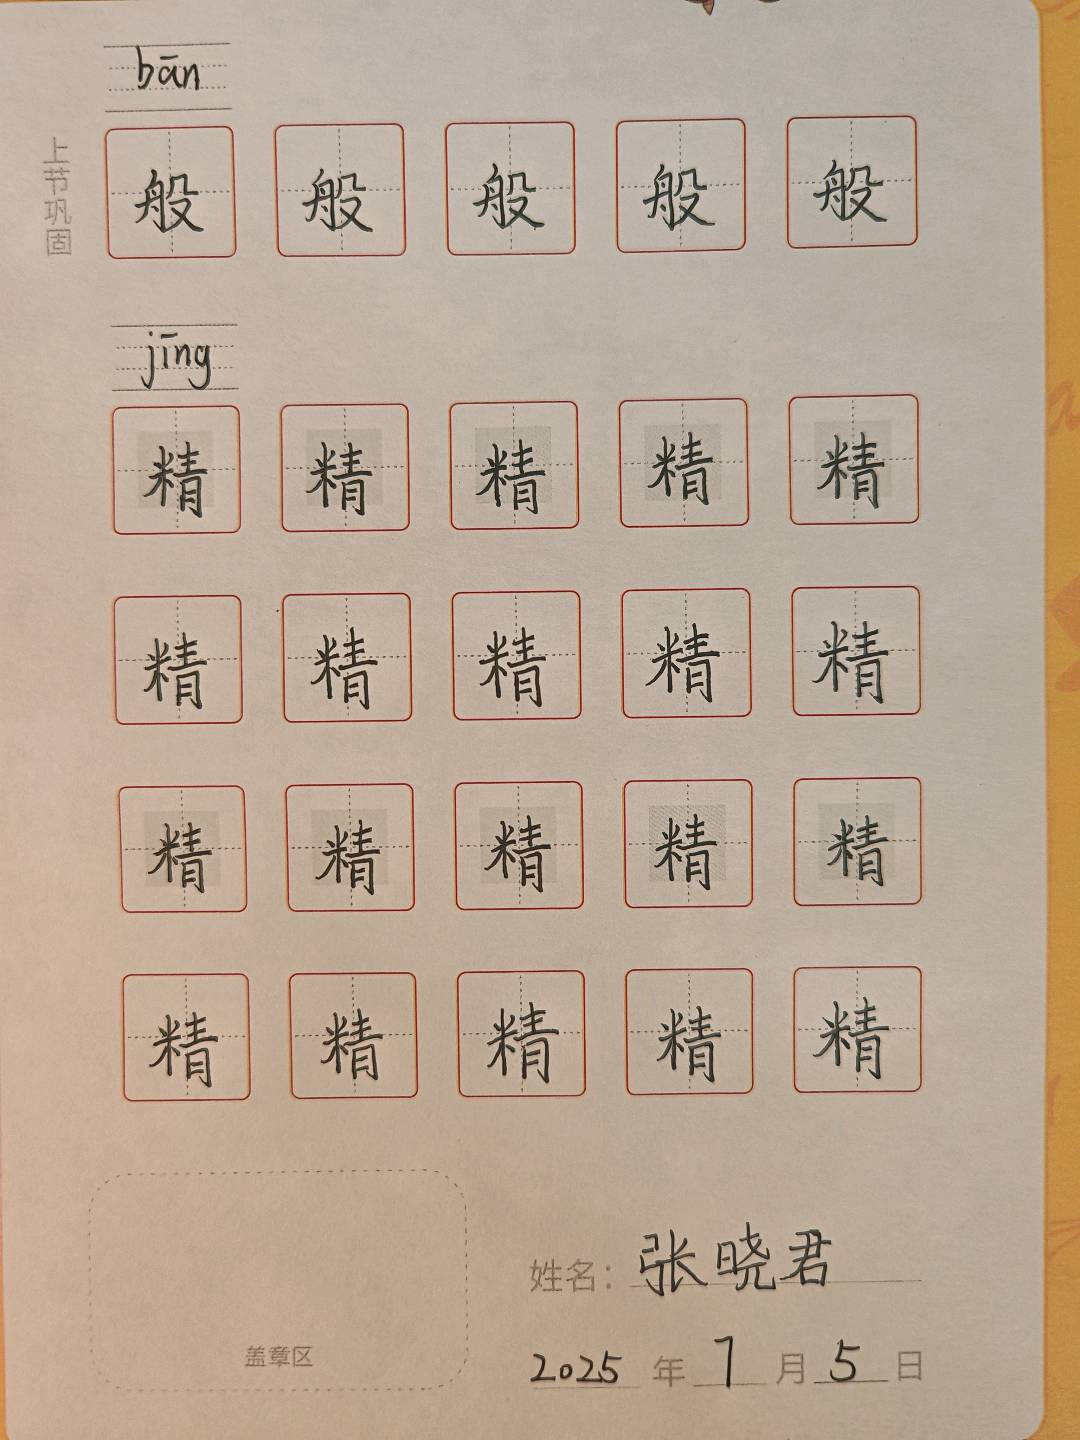 bān
上节巩固
般 般 般 般 般
jīng
精 精 精 精 精
精 精 精 精 精
精 精 精 精 精
精 精 精 精 精
姓名：张晓君
盖章区
2025 年 7 月 5 日